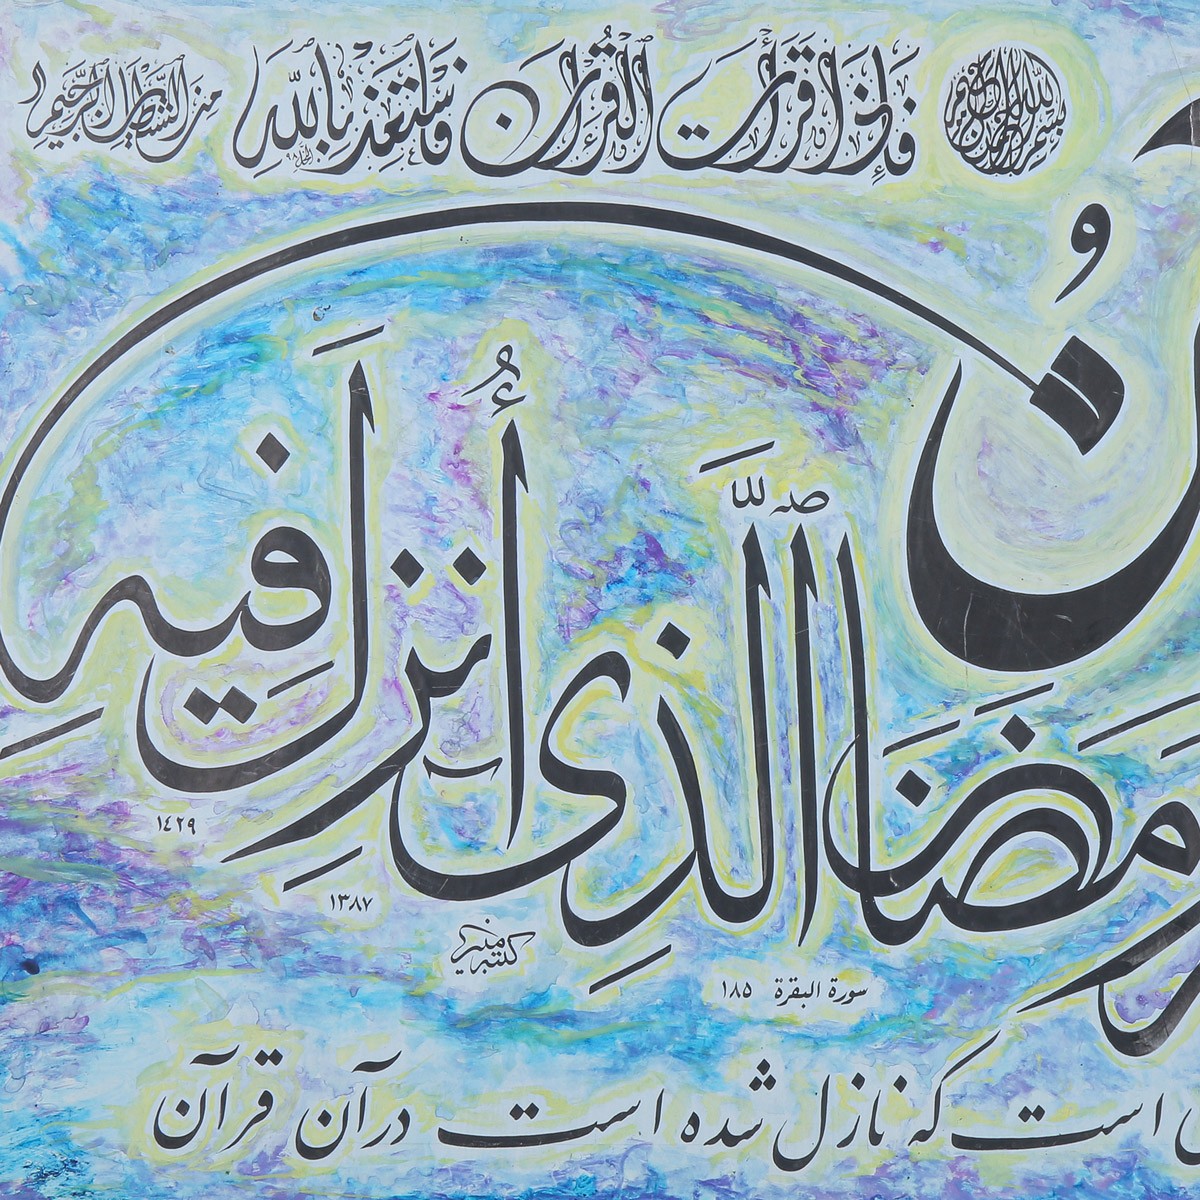 بسم الله الرحمن الرحيم
فَإِذَا قَرَأْتَ الْقُرْآنَ فَاسْتَعِذْ بِاللَّهِ مِنَ الشَّيْطَانِ الرَّجِيمِ
النحل ٩٨
رَمَضَانُ الَّذِي أُنْزِلَ فِيهِ
١٤٢٩
١٣٨٧
كتبه منير
سورة البقرة ١٨٥
است که نازل شده است در آن قرآن